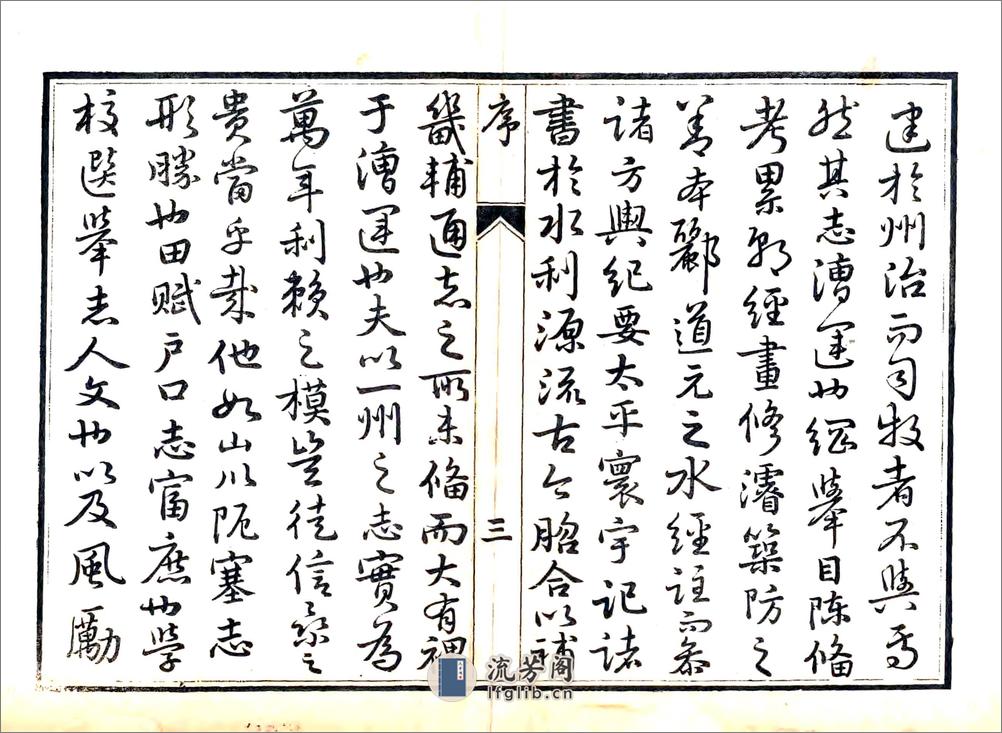 建於州治而司牧者不與焉
然其志漕運也綱舉目陳備
考累朝經畫修濬築防之
善本酈道元之水經註而參
諸方輿紀要太平寰宇記諸
書於水利源流古今脗合以補
序
三
畿輔通志之所未備而大有裨
于漕運也夫以一州之志實為
萬年利賴之模豈徒信之
貴當乎哉他如山川阨塞志
形勝也田賦戶口志富庶也學
校選舉志人文也以及風勵
流芳阁
lfglib.cn